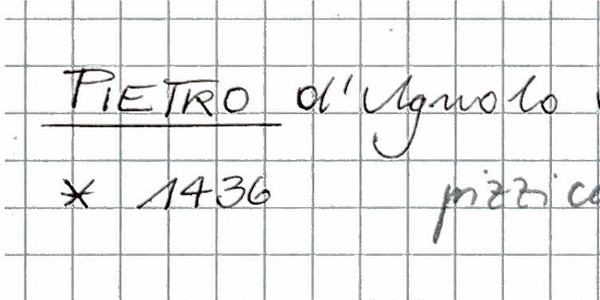 PIETRO d'Agnolo
* 1436 pizzico